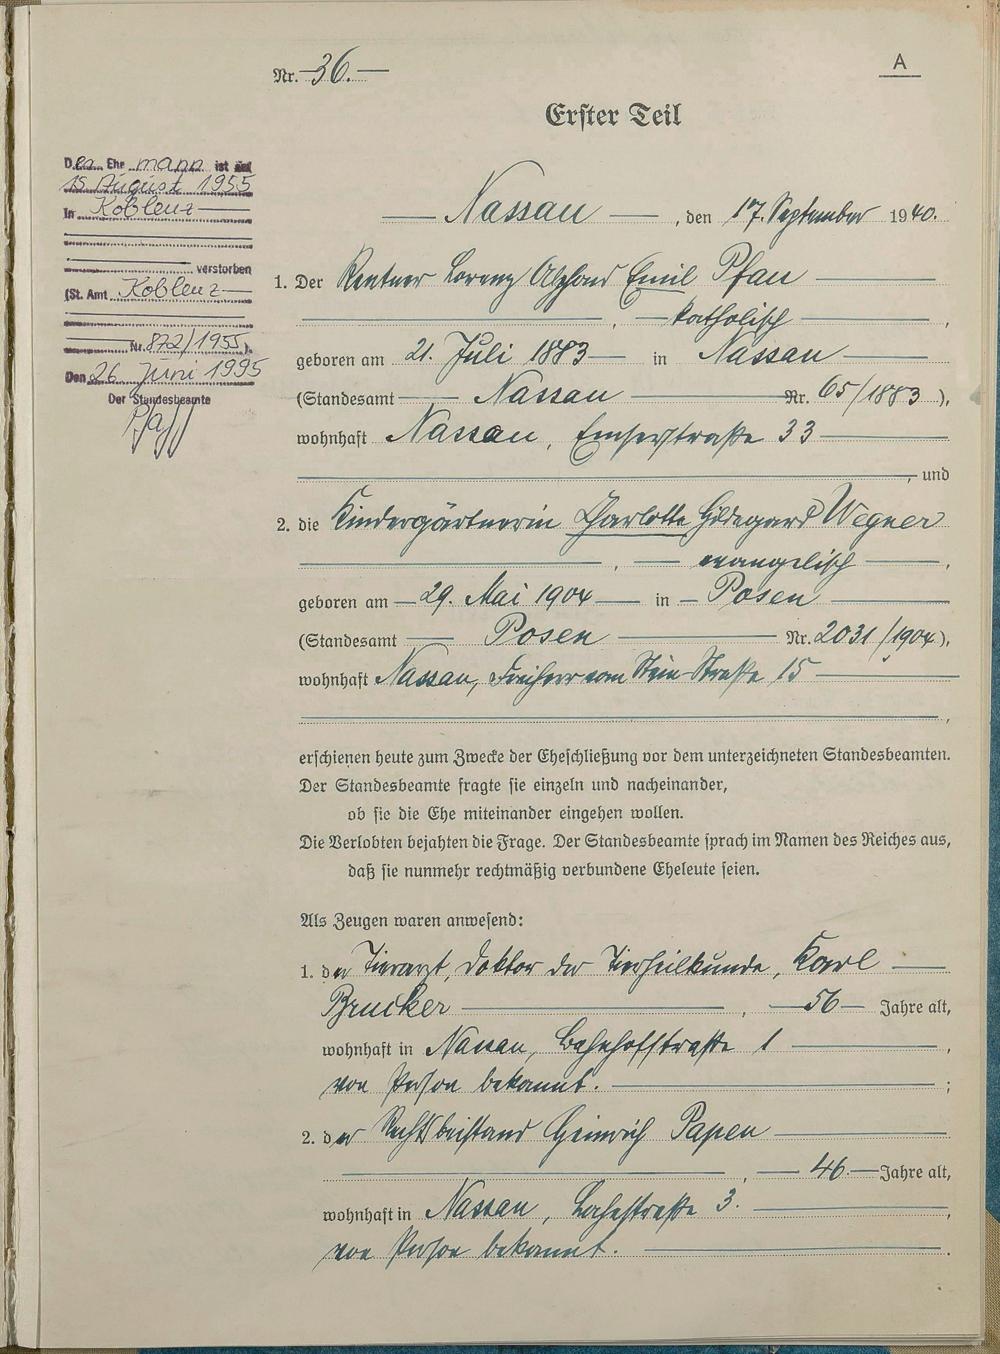 Nr. 36.
A
Erster Teil
Der Ehemann ist am
15. August 1955
In Koblenz
verstorben
(St. Amt Koblenz
Nr. 872/1955).
Den 26. Juni 1995
Der Standesbeamte
Pfaff
Nassau, den 17. September 1940.
1. Der Rentner Lorenz Alfons Emil Pfau
, katholisch,
geboren am 21. Juli 1883 in Nassau
(Standesamt Nassau Nr. 65/1883),
wohnhaft Nassau, Emserstraße 33
, und
2. die Kindergärtnerin Charlotte Hildegard Wegner
, evangelisch,
geboren am 29. Mai 1904 in Posen
(Standesamt Posen Nr. 2031/1904),
wohnhaft Nassau, Freiherr vom Stein-Straße 15
,
erschienen heute zum Zwecke der Eheschließung vor dem unterzeichneten Standesbeamten.
Der Standesbeamte fragte sie einzeln und nacheinander,
ob sie die Ehe miteinander eingehen wollen.
Die Verlobten bejahten die Frage. Der Standesbeamte sprach im Namen des Reiches aus,
daß sie nunmehr rechtmäßig verbundene Eheleute seien.
Als Zeugen waren anwesend:
1. der Tierarzt, Doktor der Tierheilkunde, Karl
Brucker, 56 Jahre alt,
wohnhaft in Nassau, Bahnhofstraße 1,
von Person bekannt.;
2. der Rechtsbeistand Heinrich Papen
, 46 Jahre alt,
wohnhaft in Nassau, 3.,
von Person bekannt..